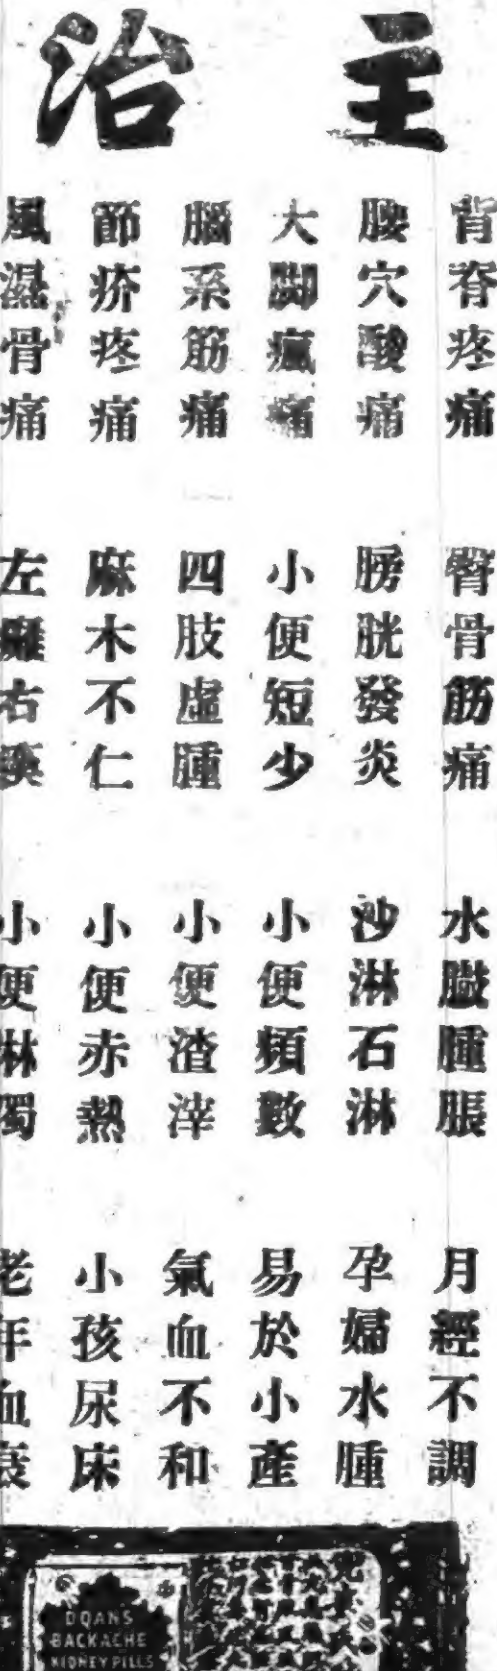 主治
背脊疼痛
腰穴酸痛
大脚瘋痛
腦系筋痛
節疥疼痛
風濕骨痛
臀骨筋痛
膀胱發炎
小便短少
四肢虛腫
麻木不仁
左癱右瘓
水臌腫脹
沙淋石淋
小便頻數
小便渣滓
小便赤熱
小便淋濁
月經不調
孕婦水腫
易於小產
氣血不和
小孩尿床
老年血衰
DOANS
BACKACHE
KIDNEY PILLS